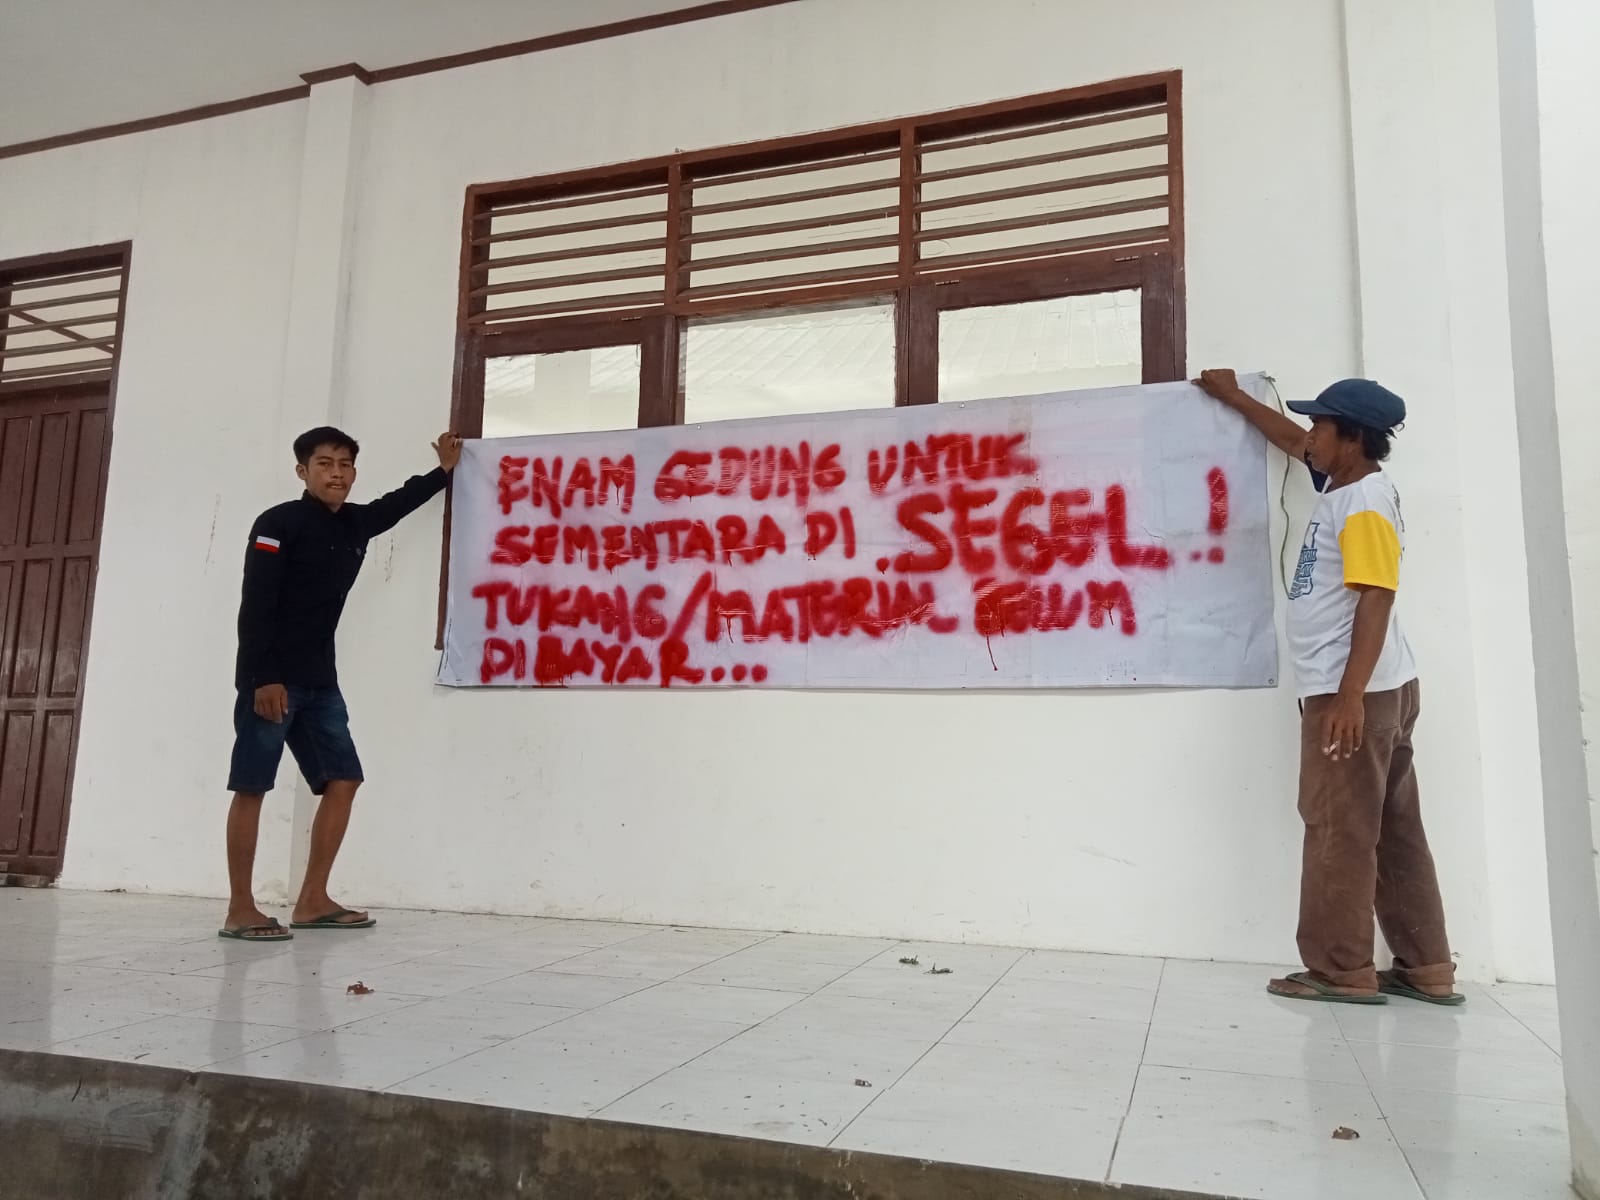 ENAM GEDUNG UNTUK
SEMENTARA DI .SEGEL..!
TUKANG/MATERIAL BELUM
DI BAYAR...